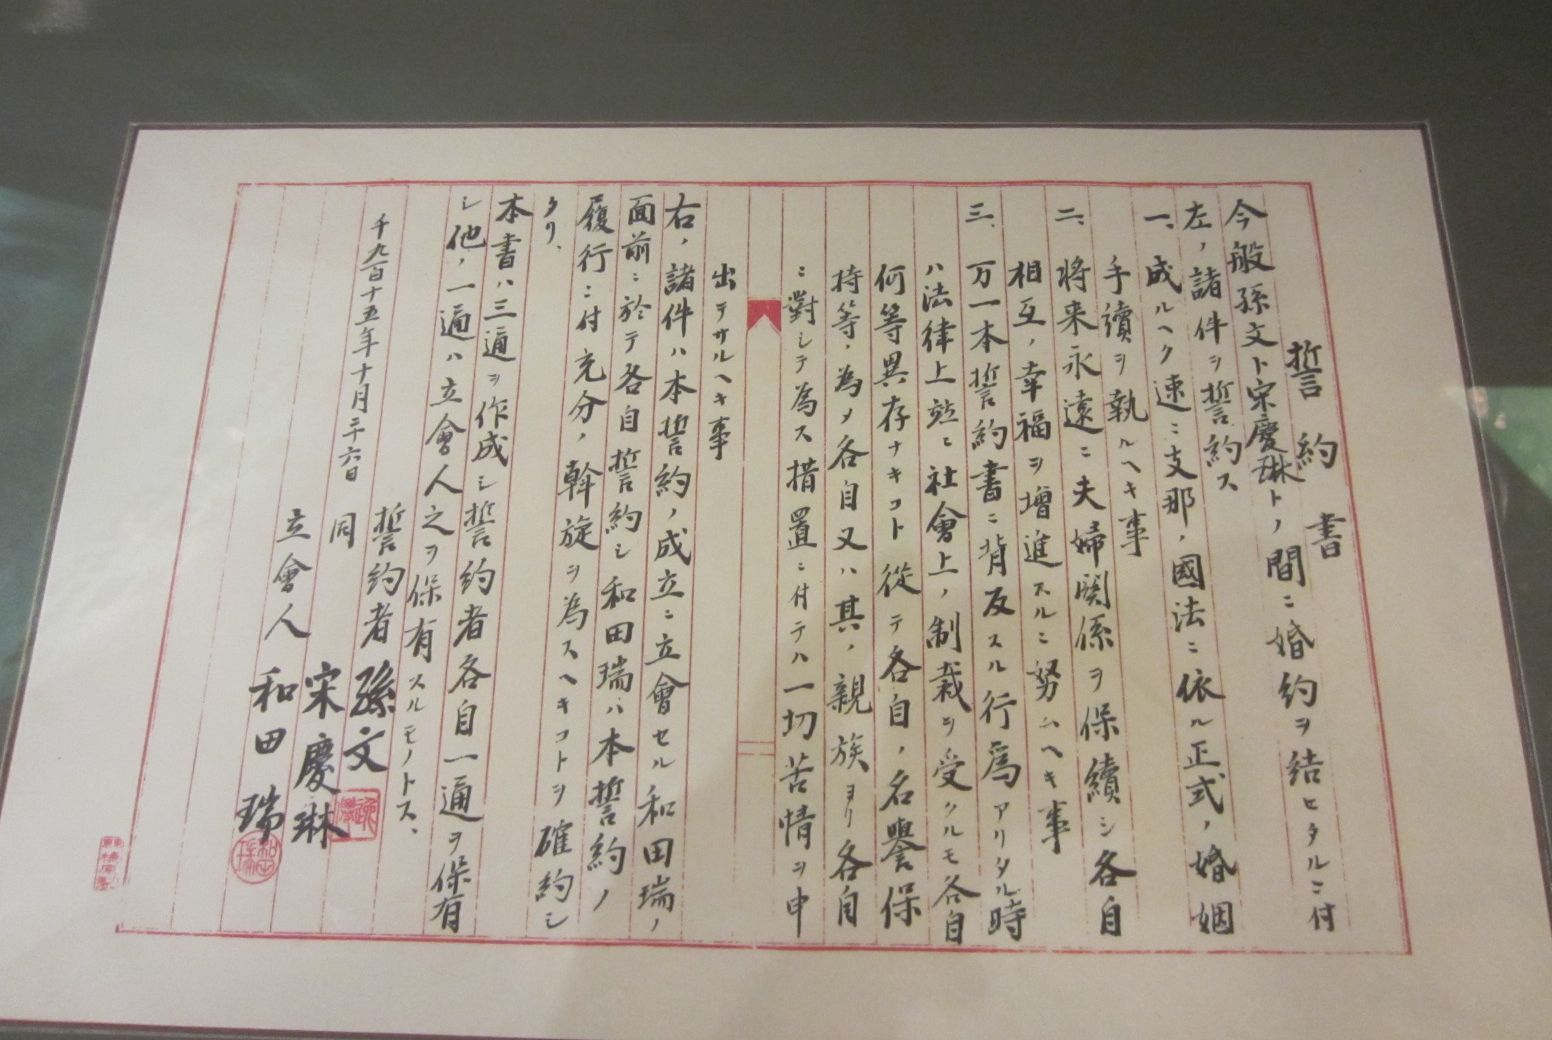 誓約書
今般孫文ト宋慶琳トノ間ニ婚約ヲ結セタルニ付
左ノ諸件ヲ誓約ス
一、成ルヘク速ニ支那ノ國法ニ依ル正式ノ婚姻
手續ヲ執ルヘキ事
二、将来永遠ニ夫婦関係ヲ保續シ各自
相互ノ幸福ヲ增進スルニ努ムヘキ事
三、万一本誓約書ニ背反スル行為アリタル時
ハ法律上竝ニ社會上ノ制裁ヲ受クルモ各自
何等異存ナキコト從テ各自ノ名譽保
持等ノ為メ各自又ハ其ノ親族ヨリ各自
ニ對シテ為ス措置ニ付テハ一切苦情ヲ申
出テサルヘキ事
右ノ諸件ハ本誓約ノ成立ニ立會セル和田瑞ノ
面前ニ於テ各自誓約シ和田瑞ハ本誓約ノ
履行ニ付充分ノ斡旋ヲ為スヘキコトヲ確約シ
タリ、
本書ハ三通ヲ作成シ誓約者各自一通ヲ保有
シ他ノ一通ハ立會人之ヲ保有スルモノトス、
千九百十五年十月二十六日
誓約者 孫文
同 宋慶琳
立會人 和田瑞